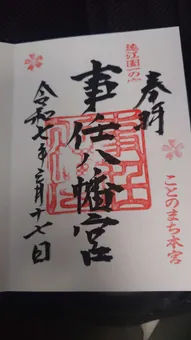 奉拝
ことのまち本宮
遠江國一の宮
事任八幡宮
令和七年三月十七日